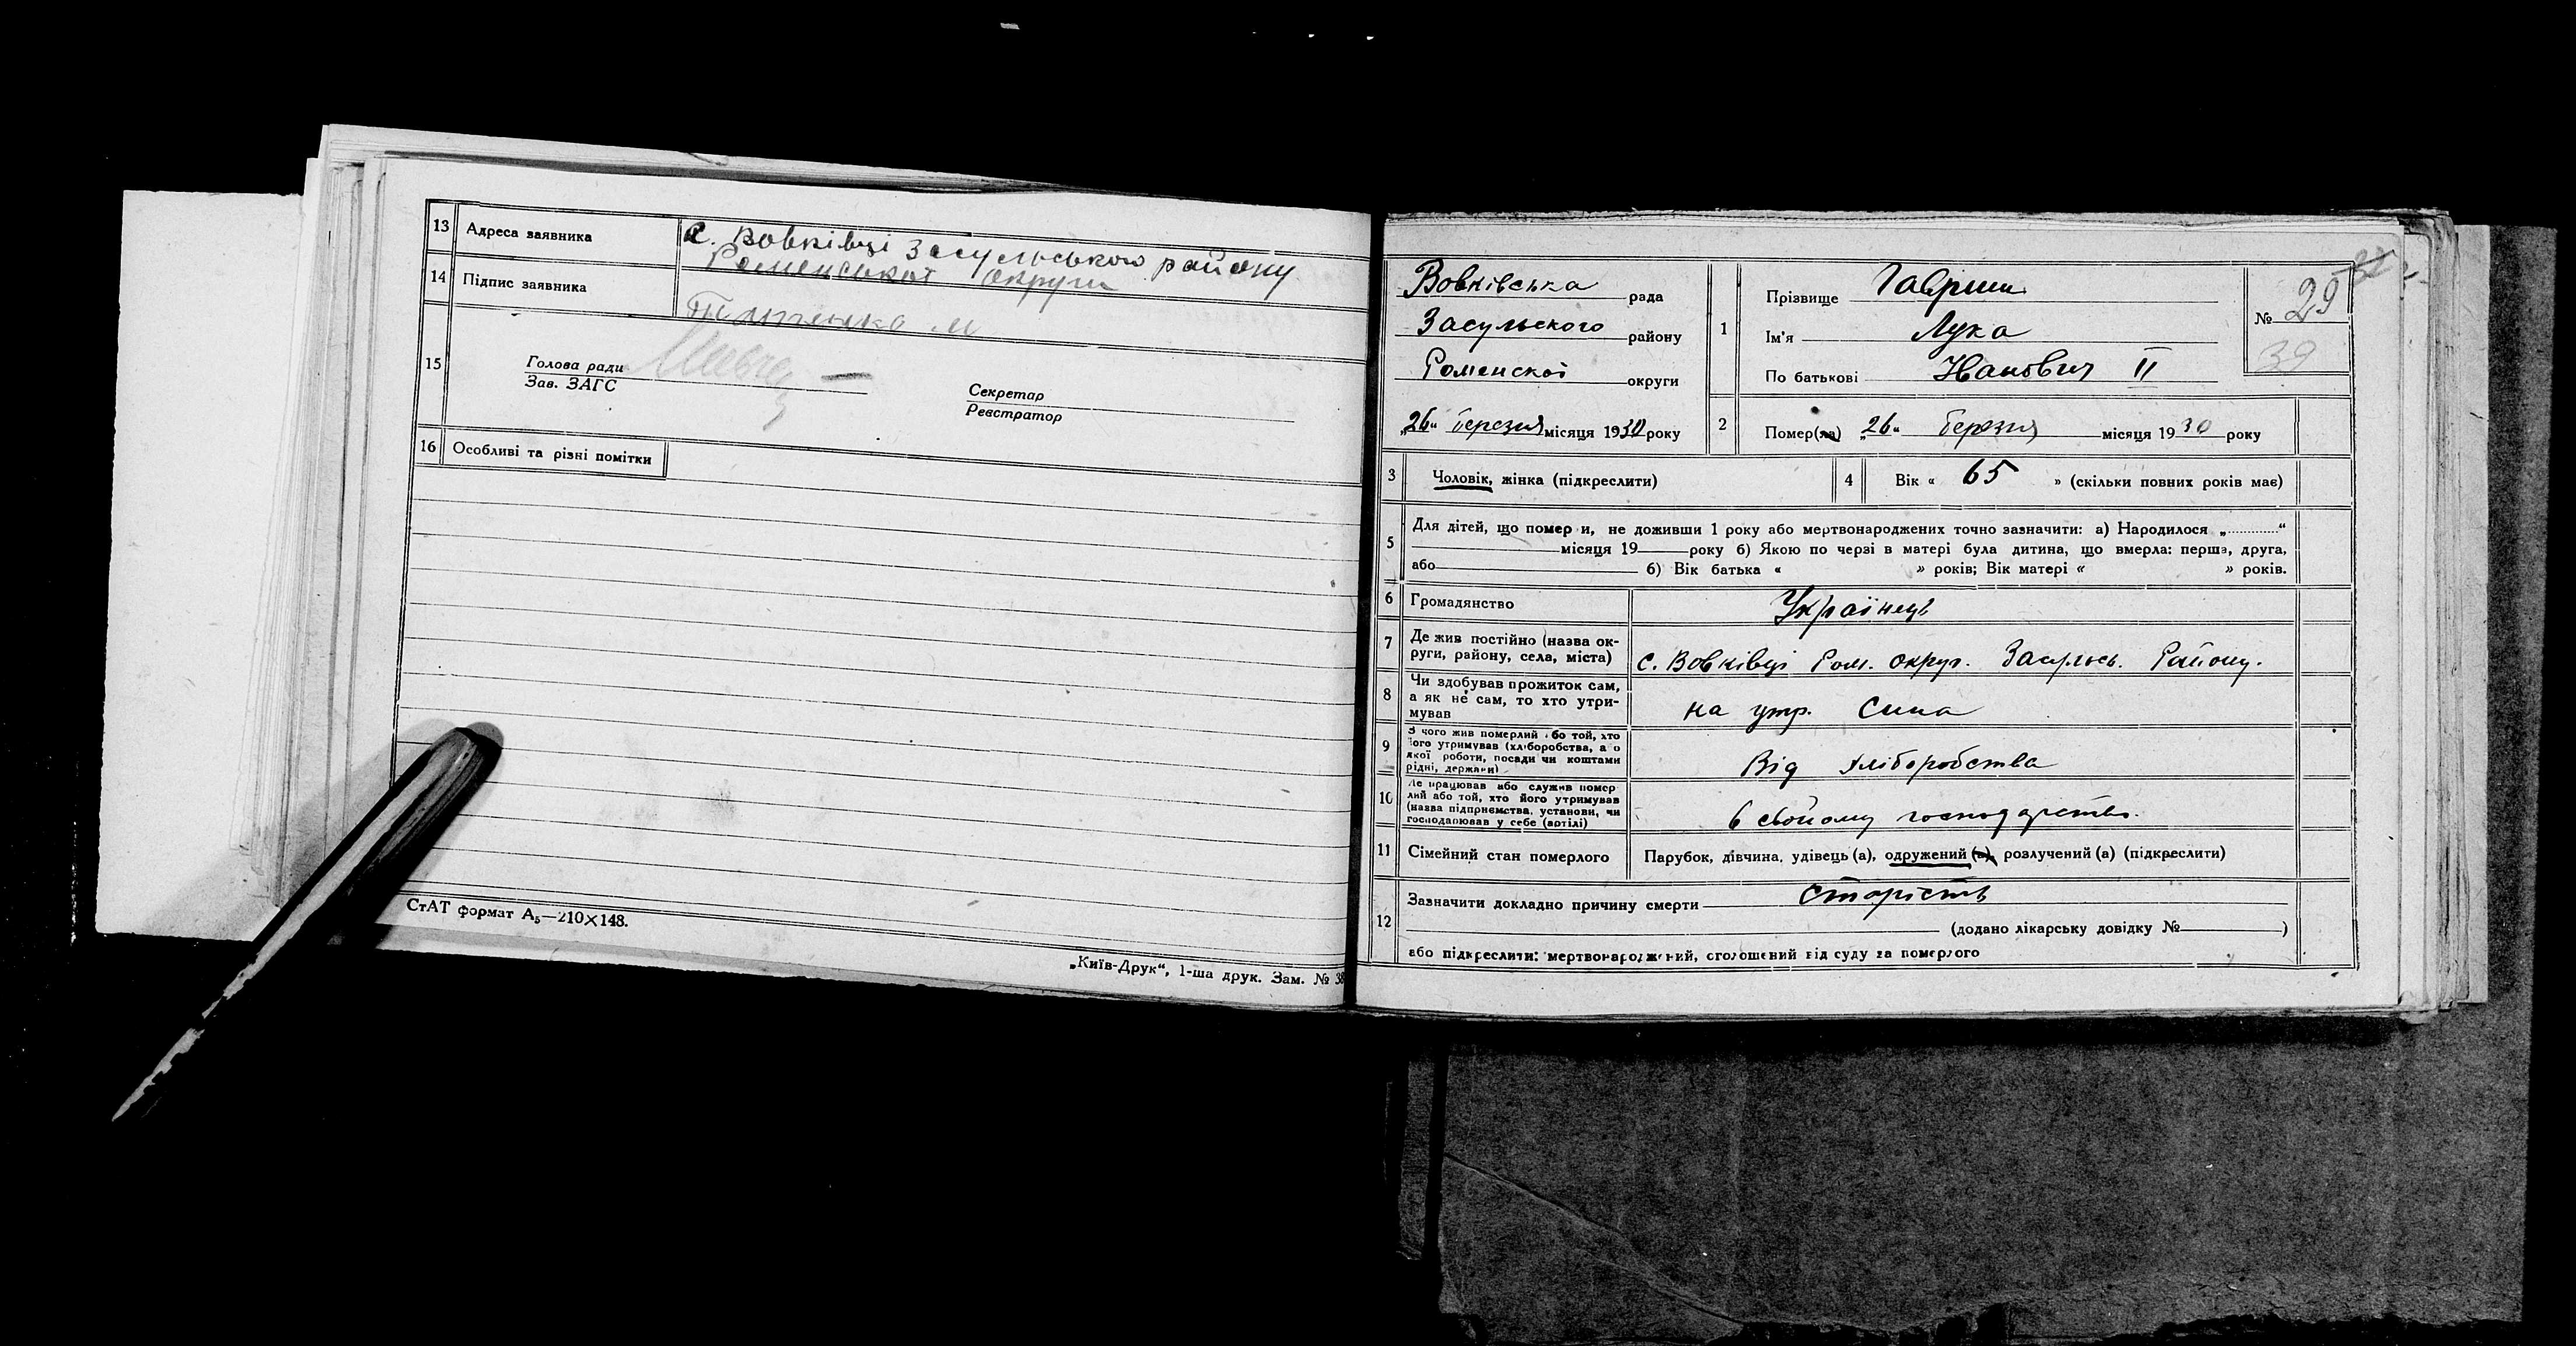 13 Адреса заявника с. Вовківці Засульського району
Роменської округи
14 Підпис заявника
15
Голова ради
Зав. ЗАГС
Секретар
Реєстратор
16 Особливі та різні помітки
СтАТ формат А5—210×148.
„Київ-Друк“, 1-ша друк. Зам. № 38
Вовківська рада
Засульского району
Роменскої округи
„26“ березня місяця 1930 року
1 Прізвище Гавриш
Ім'я Лука
По батькові Іванович II
№ 29
39
2 Помер(ла) „26“ березня місяця 1930 року
3 Чоловік, жінка (підкреслити)
4 Вік « 65 » (скільки повних років має)
5 Для дітей, що помер и, не доживши 1 року або мертвонароджених точно зазначити: а) Народилося „............“
місяця 19 року б) Якою по черзі в матері була дитина, що вмерла: перша, друга,
або б) Вік батька « » років; Вік матері « » років.
6 Громадянство Українець
7 Де жив постійно (назва ок-
руги, району, села, міста) с. Вовківці Ром. округ. Засульсь. Району.
8 Чи здобував прожиток сам,
а як не сам, то хто утри-
мував на утр. Сина
9 З чого жив померлий або той, хто
його утримував (хліборобства, а о
якої роботи, посади чи коштами
рідні, держави) Від хліборобства
10 Де працював або служив помер
лий або той, хто його утримував
(назва підприємства, установи, чи
господарював у себе (артілі) в свойому господарстві.
11 Сімейний стан померлого Парубок, дівчина, удівець (а), одружений (а), розлучений (а) (підкреслити)
12 Зазначити докладно причину смерти старість
(додано лікарську довідку № )
або підкреслити: мертвонароджений, оголошений від суду за померлого